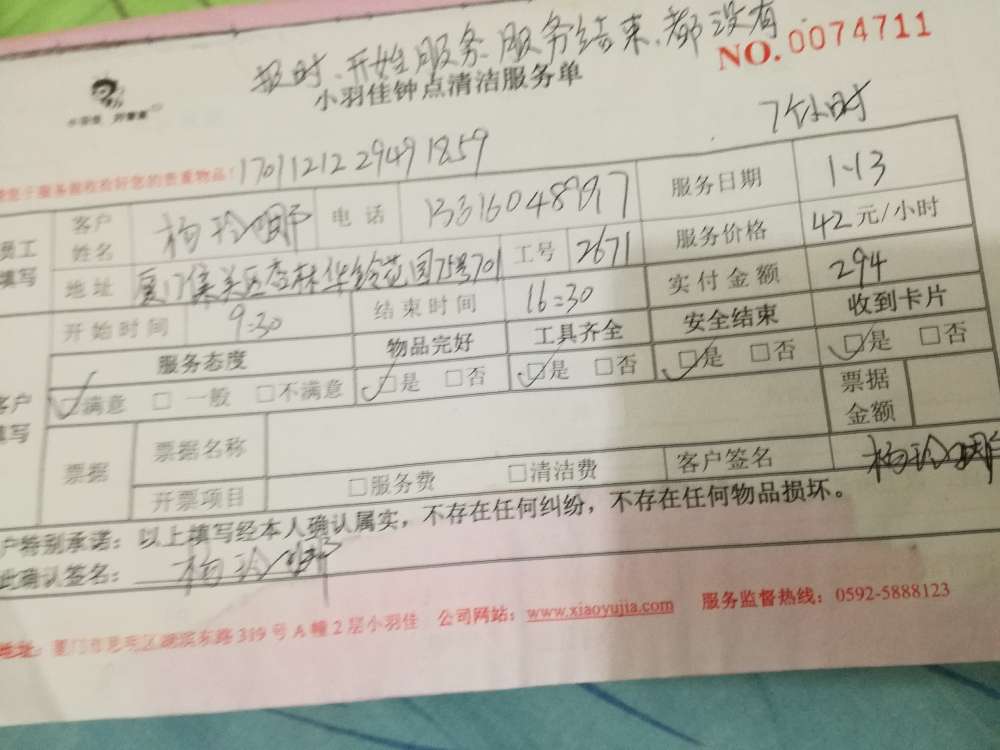 报时、开始服务、服务结束、都没有
NO.0074711
小羽佳钟点清洁服务单
小羽佳
7个小时
1701121229491859
员工填写
客户姓名 杨玲娜 电话 13316048997 服务日期 1-13
地址 厦门集美区杏林华铃花园75号701 工号 2671 服务价格 42元/小时
开始时间 9:30 结束时间 16:30 实付金额 294
客户填写
服务态度 物品完好 工具齐全 安全结束 收到卡片
☑满意 □一般 □不满意 ☑是 □否 ☑是 □否 ☑是 □否 ☑是 □否
票据 票据名称 票据金额
开票项目 □服务费 □清洁费 客户签名 杨玲娜
户特别承诺:以上填写经本人确认属实,不存在任何纠纷,不存在任何物品损坏。
此确认签名: 杨玲娜
地址:厦门市思明区湖滨东路319号A幢2层小羽佳 公司网站:www.xiaoyujia.com 服务监督热线:0592-5888123